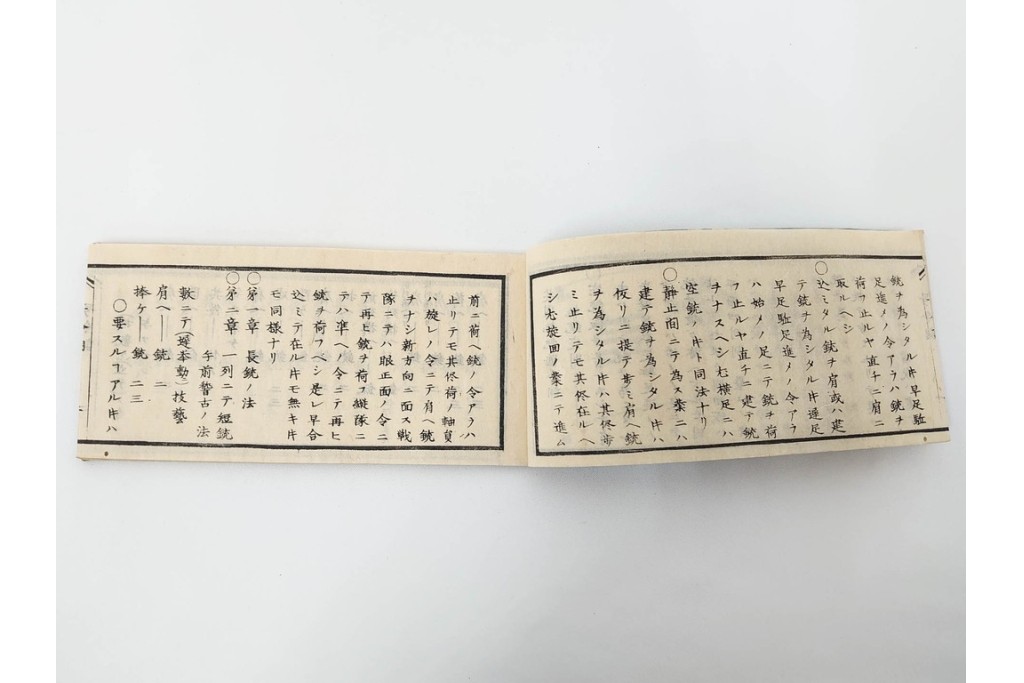 銃ヲ為シタル片早足駈
足進メノ令アラハ銃ヲ
荷フ止ルヤ直チニ肩ニ
取ルヘシ
〇込ミタル銃ヲ肩或ハ建
テ銃ヲ為シタル片遅足
早足駈足進メノ令アラ
ハ始メノ足ニテ銃ヲ荷
フ止ルヤ直チニ建テ銃
ヲナスヘシ乜横足ニハ
空銃ノ片ト同法ナリ
〇静止間ニテ為ス業ニハ
建テ銃ヲ為シタル片ハ
仮リニ提テ歩ミ肩ヘ銃
ヲ為シタル片ハ其侭歩
ミ止リテモ其侭在ルヘ
シ乜旋回ノ業ニテ進ム
前ニ荷ヘ銃ノ令アラハ
止リテモ其侭荷ノ軸貟
ハ旋レノ令ニテ肩ヘ銃
ヲナシ新方向ニ面ス戦
隊ニテハ眼正面ノ令ニ
テ再ヒ銃ヲ荷フ縦隊ニ
テハ準ヘノ令ニテ再ヒ
銃ヲ荷フヘシ是レ早合
込ミテ在ル片モ無キ片
モ同様ナリ
〇第一章 長銃ノ法
〇第二章 一列ニテ短銃
午前稽古ノ法
數ニテ(操奉動)技藝
肩ヘ——銃 二
捧ケ——銃 二三
〇要スルヿアル片ハ